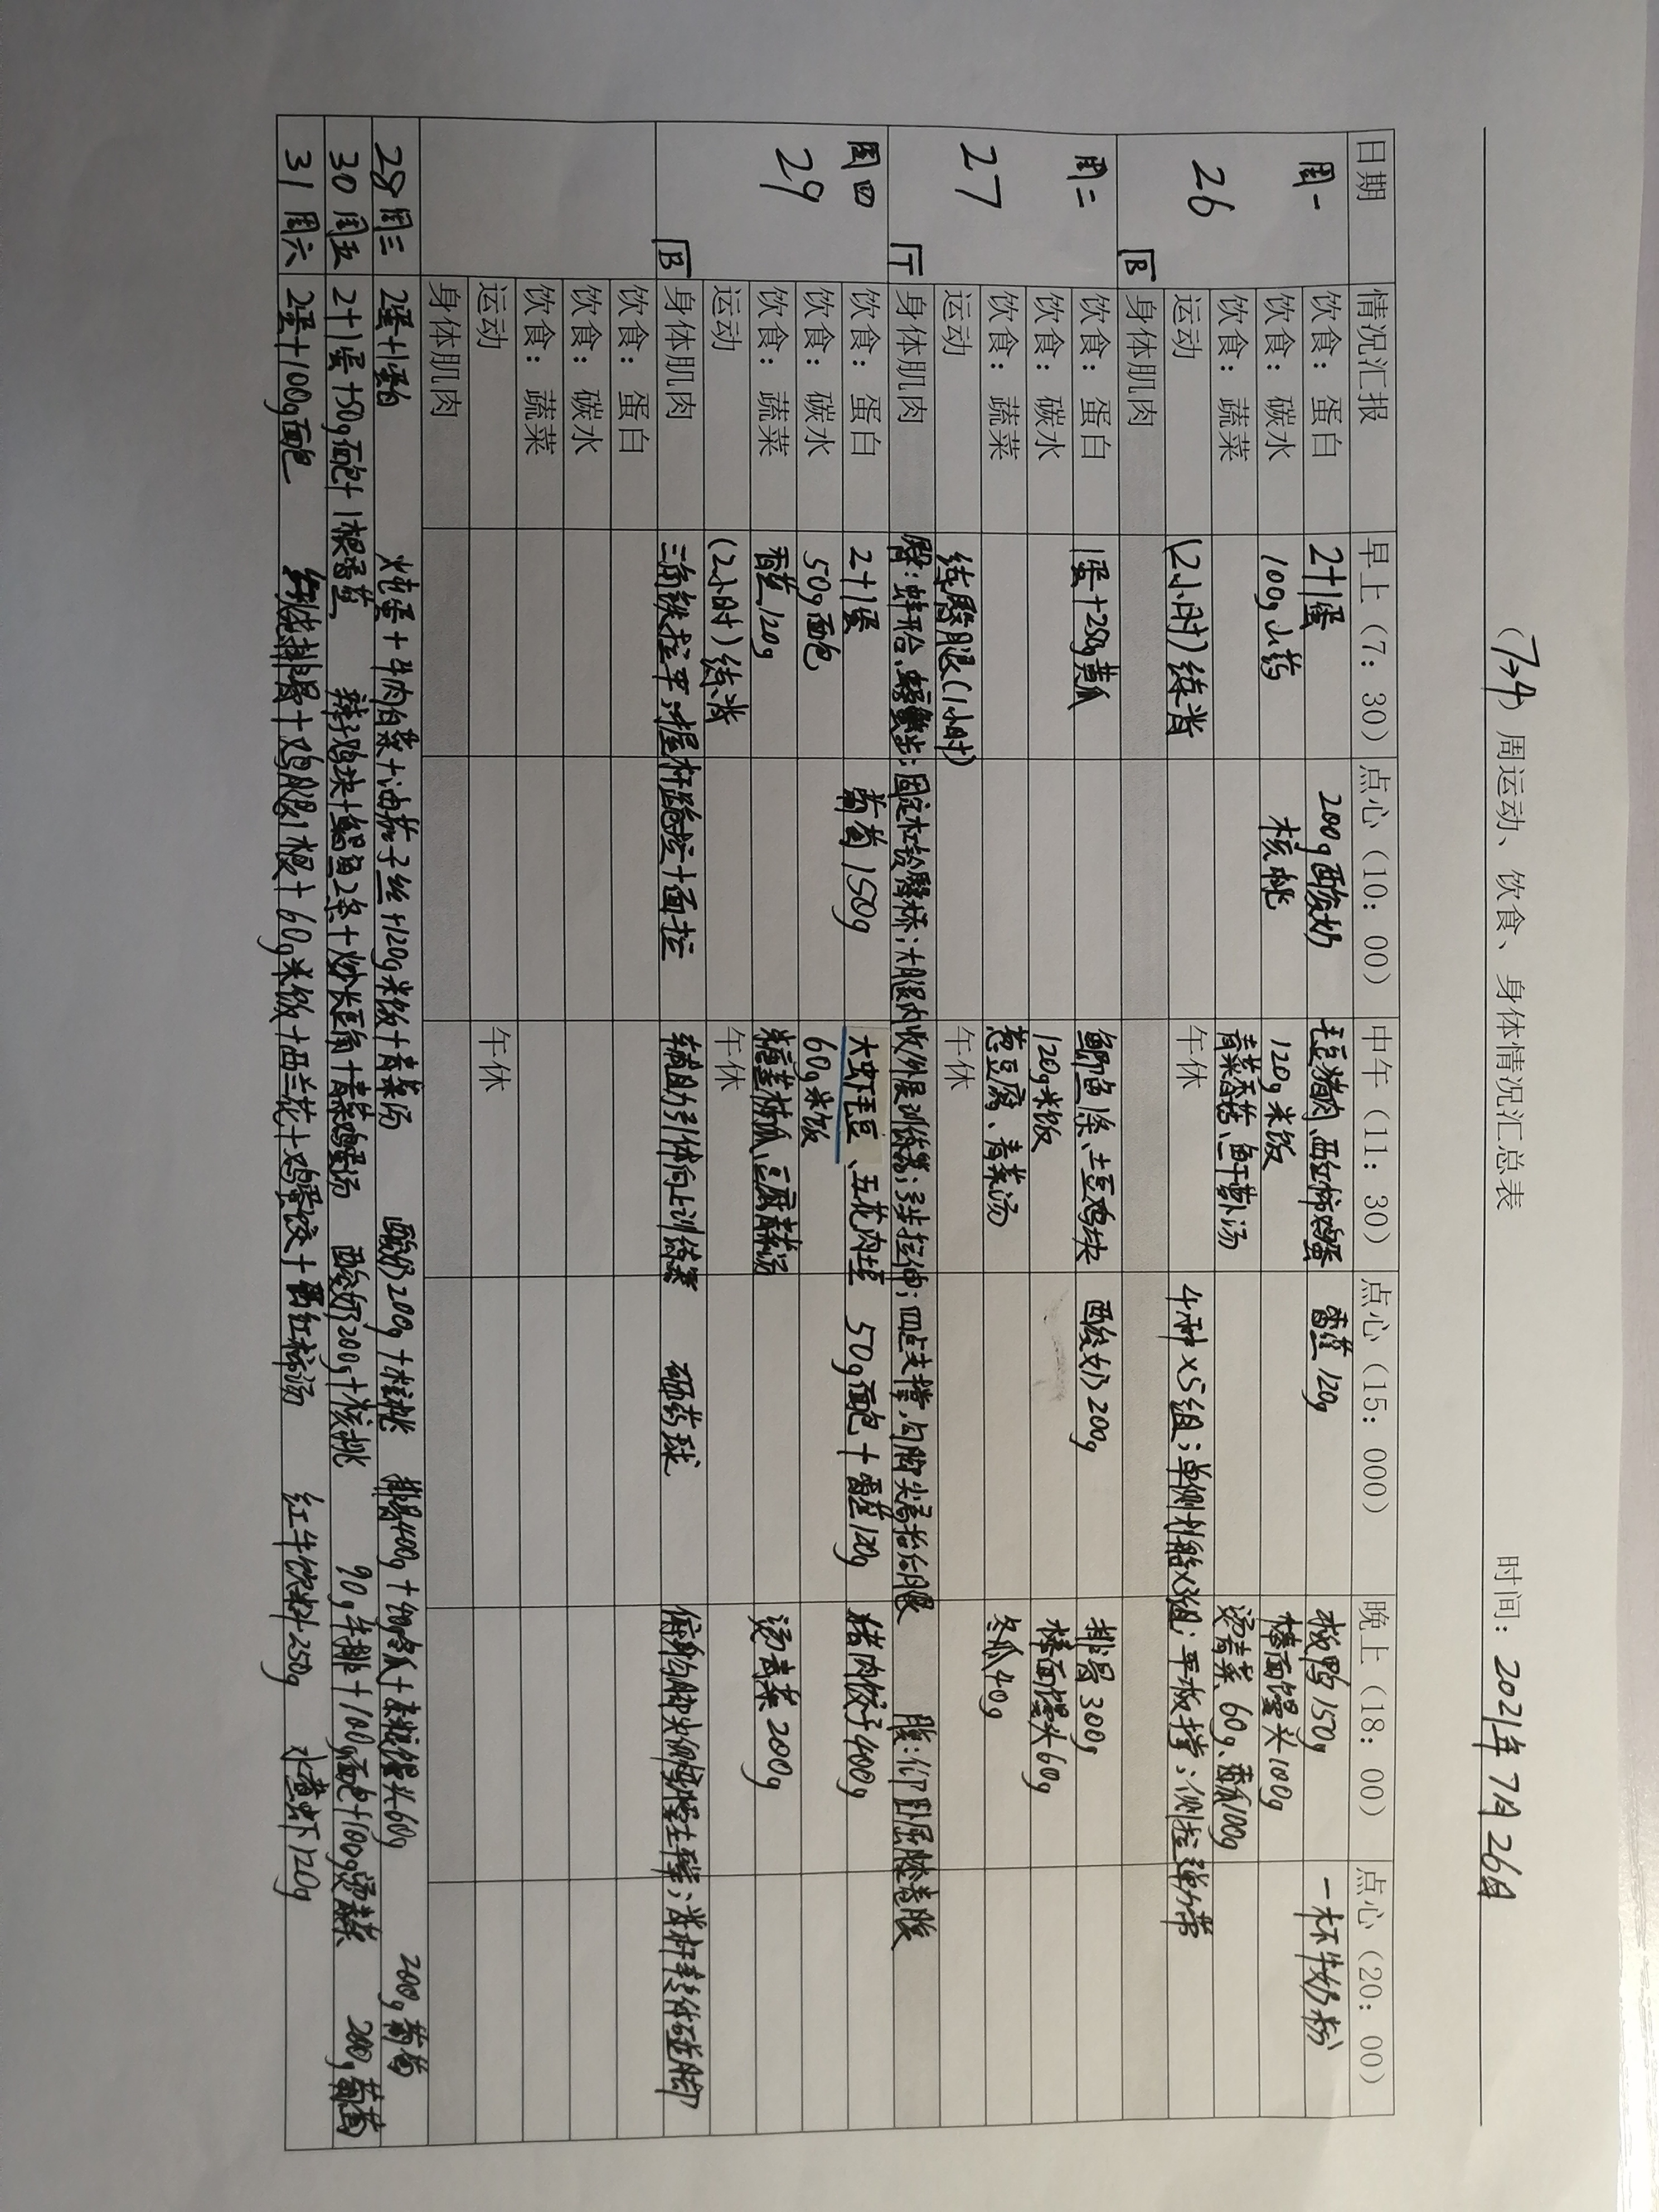 （7→4）周运动、饮食、身体情况汇总表 时间：2021年7月26日
日期 情况汇报 早上（7：30） 点心（10：00） 中午（11：30） 点心（15：000） 晚上（18：00） 点心（20：00）
周一 饮食：蛋白 2+1蛋 200g酸奶 毛豆猪肉、西红柿鸡蛋 香蕉120g 板鸭150g 一杯牛奶粉
饮食：碳水 100g山药 核桃 120g米饭 棒面馒头100g
26 饮食：蔬菜 青菜香菇、鱼干萝卜汤 烫青菜60g、香瓜100g
运动 (2小时)练背 午休 4种×5组；单侧划船×3组；平板撑；侧拉弹力带
B 身体肌肉
周二 饮食：蛋白 1蛋+250g黄瓜 鲫鱼1条、土豆鸡块 酸奶200g 排骨300g
饮食：碳水 120g米饭 棒面馒头60g
27 饮食：蔬菜 葱豆腐、青菜汤 冬瓜40g
运动 练臀腿(1小时) 午休
T 身体肌肉 臀：蚌开合、螃蟹步；固定杠铃臀桥；大腿内收/外展训练器；弓步拉伸；四点支撑，勾脚尖高抬后腿 腹：仰卧屈膝卷腹
周四 饮食：蛋白 2+1蛋 葡萄150g 大虾毛豆、五花肉土豆 50g面包+香蕉120g 猪肉饺子400g
29 饮食：碳水 50g面包 60g米饭
饮食：蔬菜 香蕉120g 南瓜、豆腐青菜汤 烫青菜200g
运动 (2小时)练背 午休
B 身体肌肉 三角铁拉平；握杆跪拉+面拉 辅助引体向上训练器 砸药球 俯身勾脚尖侧；背杆转体碰脚
饮食：蛋白
饮食：碳水
饮食：蔬菜
运动 午休
身体肌肉
28 周三 2蛋+1蛋白 炖蛋+牛肉白菜+油茄子丝+120g米饭+青菜汤 酸奶200g+核桃 排骨400g+40g冬瓜+杂粮馒头60g 200g葡萄
30 周五 2+1蛋+50g面包+1根香蕉 辣子鸡块+鲳鱼2条+炒长豆角+青菜鸡蛋汤 酸奶200g+核桃 90g牛排+100g面包+100g烫青菜 200g葡萄
31 周六 2蛋+100g面包 红烧排骨+鸡腿1根+60g米饭+西兰花+鸡蛋饺+西红柿汤 红牛饮料250g 水煮虾120g